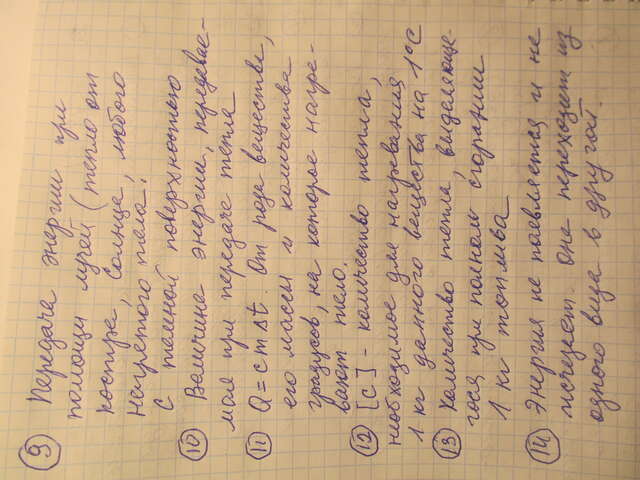 ⑨ Передача энергии при
помощи лучей (тепло от
костра, Солнца, любого
нагретого тела.
с темной поверхностью
⑩ Величина энергии, передавае-
мая при передаче тепла
⑪ Q = cm∆t. От рода вещества,
его массы и количества
градусов, на которое нагре-
вают тело.
⑫ [c] - количество тепла,
необходимое для нагревания
1 кг данного вещества на 1°C
⑬ Количество тепла, выделяюще-
гося при полном сгорании
1 кг топлива
⑭ Энергия не появляется и не
исчезает. Она переходит из
одного вида в другой.